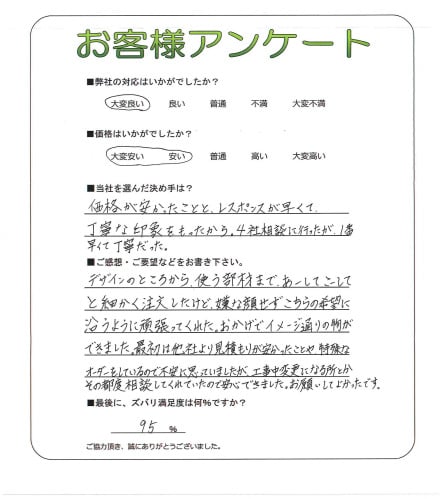 お客様アンケート
■弊社の対応はいかがでしたか?
大変良い 良い 普通 不満 大変不満
■価格はいかがでしたか?
大変安い 安い 普通 高い 大変高い
■当社を選んだ決め手は?
価格が安かったことと、レスポンスが早くて、
丁寧な印象をもったから。4社相談に行ったが、1番
早くて丁寧だった。
■ご感想・ご要望などをお書き下さい。
デザインのところから、使う部材まで、あーしてこーして
と細かく注文したけど、嫌な顔せずこちらの希望に
沿うように頑張ってくれた。おかげでイメージ通りの物が
できました。最初は他社より見積もりが安かったことや特殊な
オーダーをしているので不安に思っていましたが、工事中変更になる所とか
その都度相談してくれていたので安心できました。お願いしてよかったです。
■最後に、ズバリ満足度は何%ですか?
95 %
ご協力頂き、誠にありがとうございました。